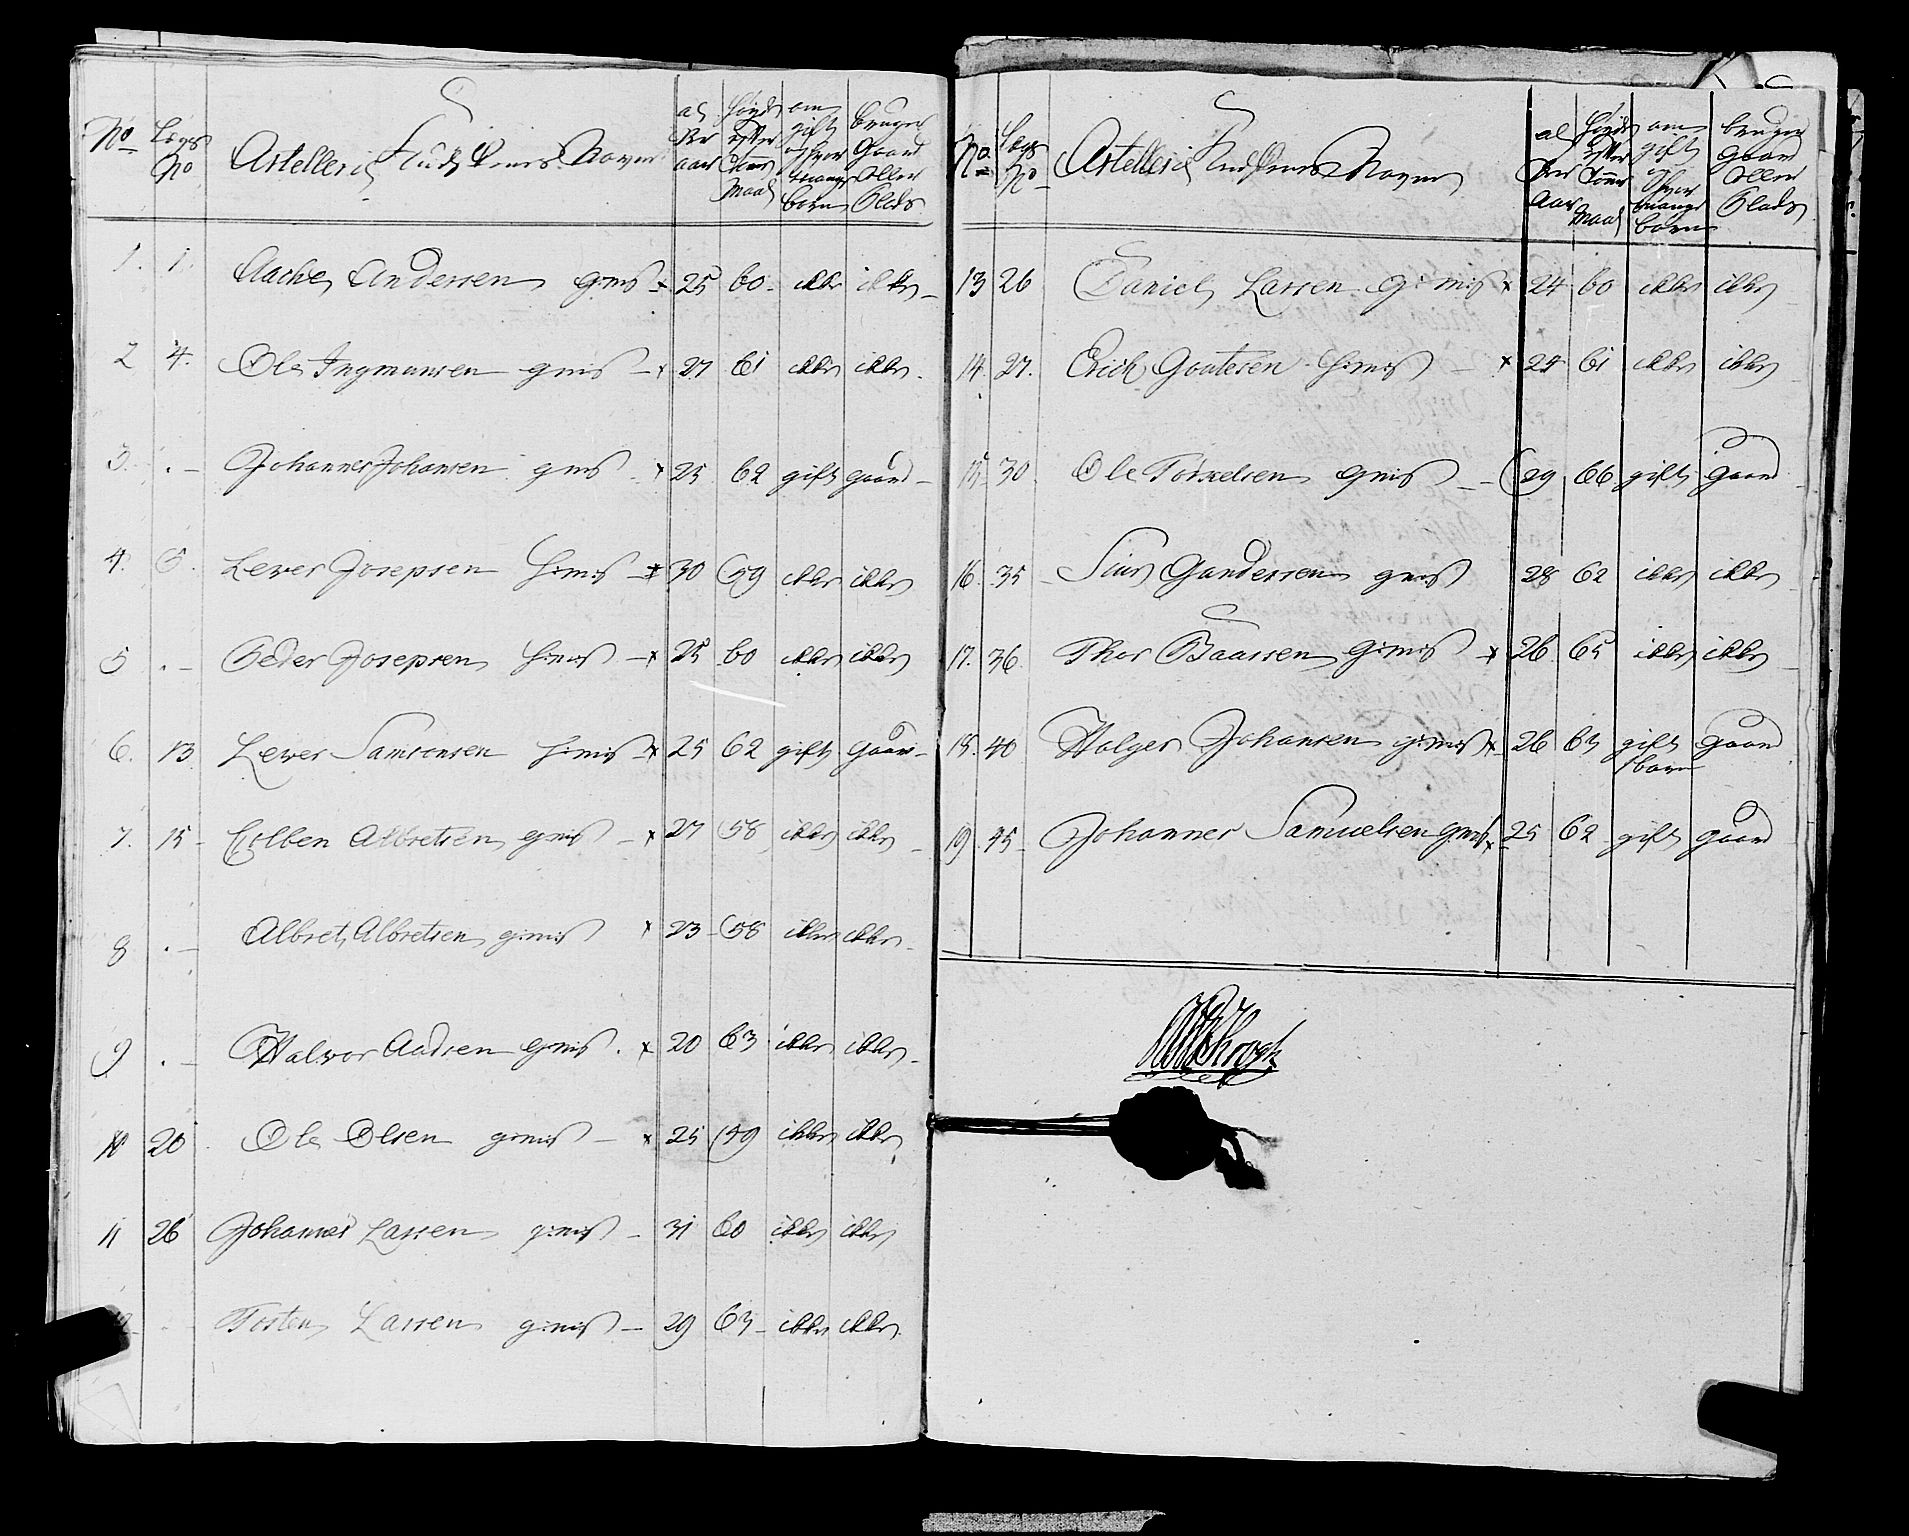 No Legs No Artelleri Kudskenes Navne alder aar Høyde efter Tomme Maal om gift og hvor mange børn bruger Gaard eller Plads
1. 1. Aache Andersen g:mis x 25 60 ikke ikke
2 4. Ole Ingmansen g:mis x 27 61 ikke ikke
3. . Johannes Johansen g:mis x 25 62 gift gaard
4. 5. Lever Josepsen h:mis x 30 59 ikke ikke
5 . Peder Josepsen h:mis x 25 60 ikke ikke
6. 13 Lever Samsonsen h:mis x 25 62 gift gaard
7. 15 Colben Albretsen g:mis x 27 58 ikke ikke
8 . Albret Albretsen g:mis x 23 58 ikke ikke
9 . Halvor Aadsen g:mis x 20 63 ikke ikke
10 20 Ole Olsen g:mis x 25 59 ikke ikke
11 26 Johannes Larsen g:mis 31 60 ikke ikke
Torsten Larsen g:mis 29 63 ikke ikke
No Legs No Artelleri Kudskenes Navne alder Aar Høyde efter Tomme Maal om gift og hvor mange børn bruger gaard eller Plads
13 26 Daniel Larsen g:mis x 24 60 ikke ikke
14. 27. Erich Goutesen h:mis x 24 61 ikke ikke
15 30 Ole Torkelsen g:mis 29 66 gift gaard
16. 35 Siur Gundersen g:mis 28 62 ikke ikke
17. 36. Thor Baassen g:mis x 26 65 ikke ikke
18. 40 Holger Johansen g:mis x 26 65 gift 1 barn gaard
19. 45 Johannes Samuelsen g:mis x 25 62 gift gaard